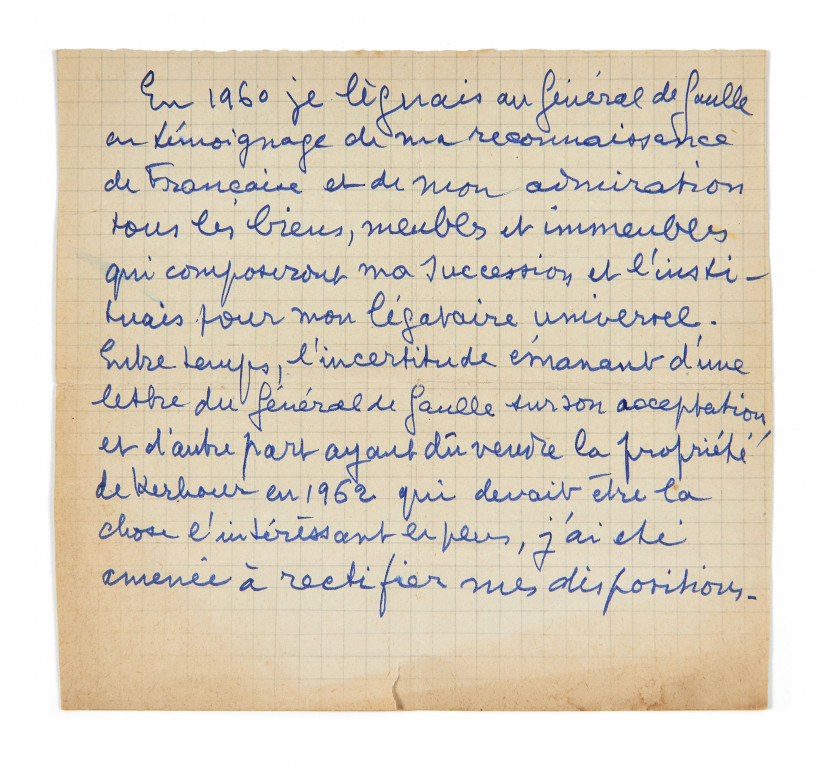 En 1960 je léguais au Général de Gaulle
en témoignage de ma reconnaissance
de Française et de mon admiration
tous les biens, meubles et immeubles
qui composeront ma succession et l'insti-
tuais pour mon légataire universel.
Entre temps, l'incertitude émanant d'une
lettre du Général de Gaulle sur son acceptation
et d'autre part ayant dû vendre la propriété
de Kerhour en 1962 qui devait être la
chose l'intéressant le plus, j'ai été
amenée à rectifier mes dispositions.